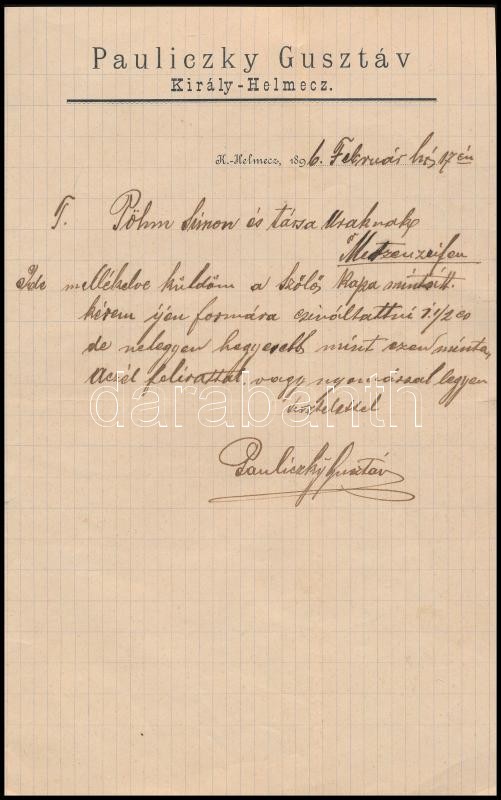 Pauliczky Gusztáv
Király-Helmecz.
K.-Helmecz, 1896. Február hó 17 én
T. Pöhm Simon és társa Uraknak
Metzenzeifen
Ide mellékelve küldöm a Szőlő kapa mintát.
kérem ijen formára csináltattni
de nelegyen hegyesebb mint ezen minta,
Aczél felirattal, vagy nyomással legyen
tisztelettel
Pauliczky Gusztáv
darabanth